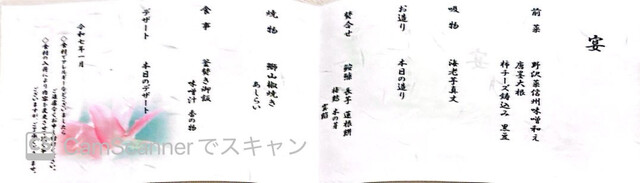 宴
前菜 野沢菜信州味噌和え
唐墨大根
柿チーズ鋳込み 黒豆
吸物 海老芋真丈
お造り 本日の造り
焚合せ 鞍鰤 長芋 蓮根餅
木の芽
焼物 鰤山椒焼き
あしらい
食事 釜焚き御飯
味噌汁 香の物
デザート 本日のデザート
令和七年一月
CamScannerでスキャン